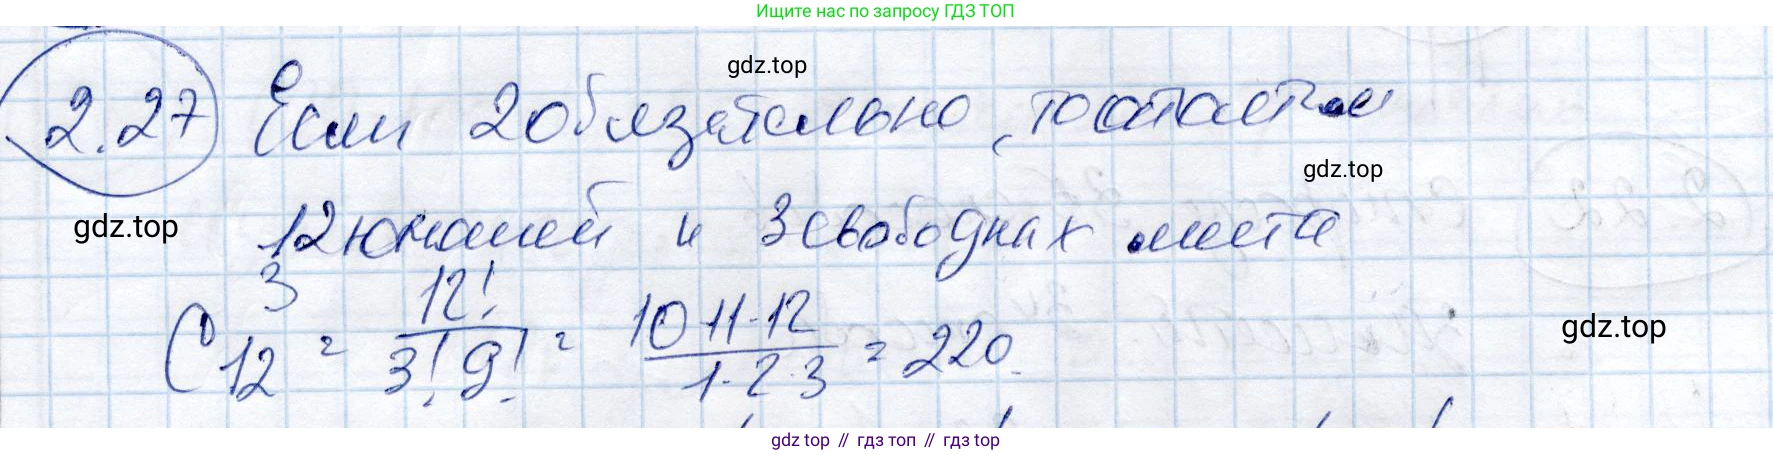 Ищите нас по запросу ГДЗ ТОП
gdz.top
2.27 Если 2 обязательно, то остаетси
gdz.top
gdz.top
12 юношей и 3 свободных места
C₁₂³ = 12! / 3! 9! = 10·11·12 / 1·2·3 = 220.
gdz.top
gdz top // гдз топ // гдз top